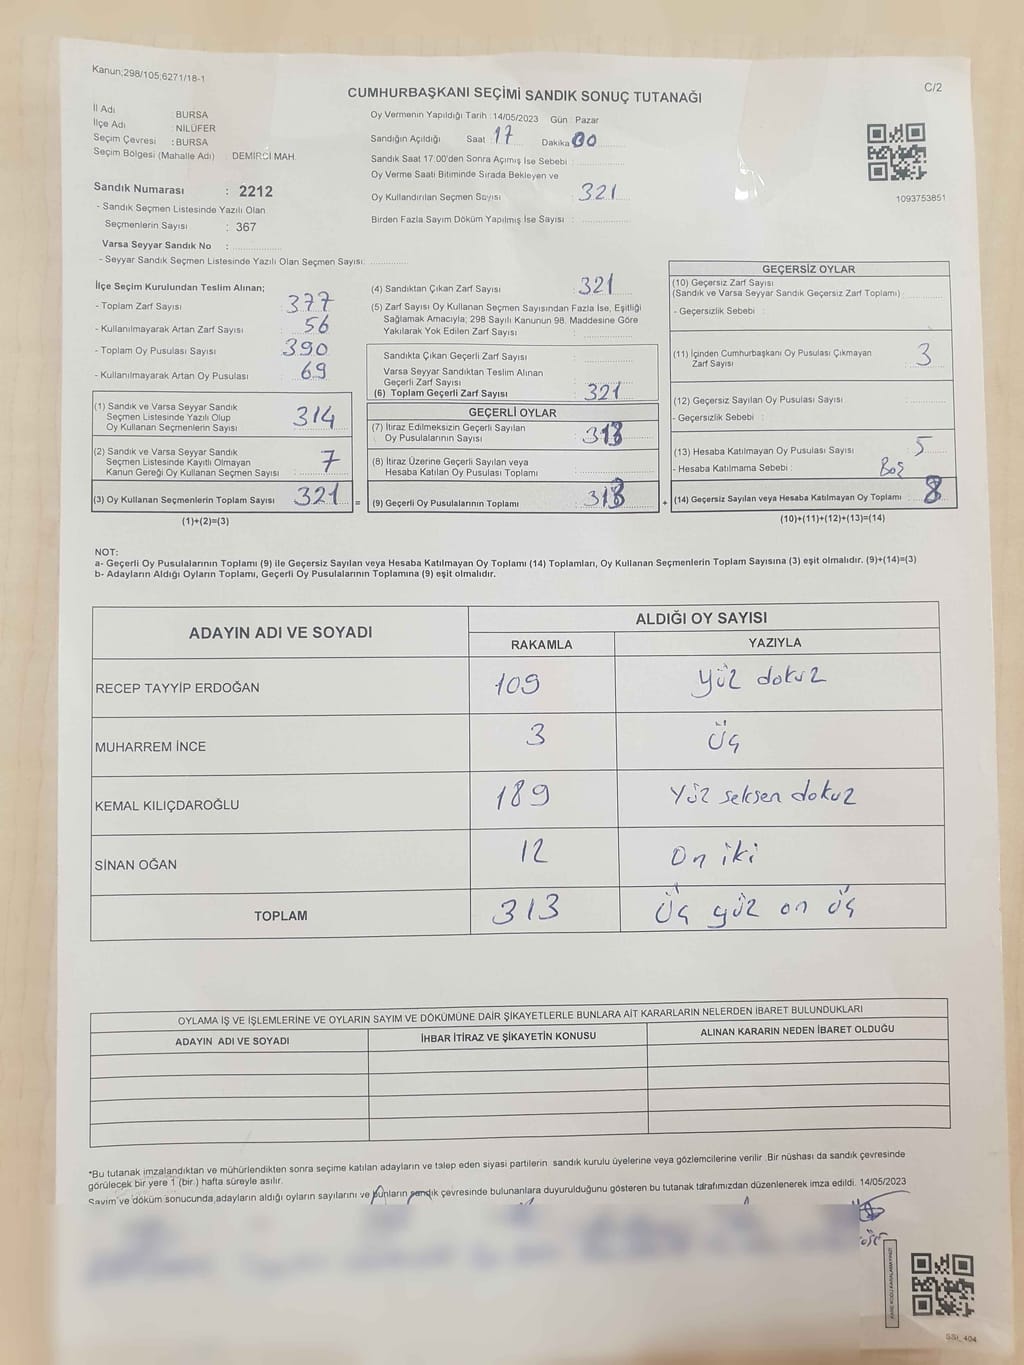 Kanun;298/105;6271/18-1
C/2
CUMHURBAŞKANI SEÇİMİ SANDIK SONUÇ TUTANAĞI
İl Adı : BURSA
İlçe Adı : NİLÜFER
Seçim Çevresi : BURSA
Seçim Bölgesi (Mahalle Adı) : DEMİRCİ MAH.
Sandık Numarası : 2212
- Sandık Seçmen Listesinde Yazılı Olan
Seçmenlerin Sayısı : 367
Varsa Seyyar Sandık No :
- Seyyar Sandık Seçmen Listesinde Yazılı Olan Seçmen Sayısı:
Oy Vermenin Yapıldığı Tarih : 14/05/2023 Gün : Pazar
Sandığın Açıldığı Saat : 17 Dakika 00
Sandık Saat 17.00'den Sonra Açımış İse Sebebi :
Oy Verme Saati Bitiminde Sırada Bekleyen ve
Oy Kullandırılan Seçmen Sayısı : 321
Birden Fazla Sayım Döküm Yapılmış İse Sayısı :
1093753851
İlçe Seçim Kurulundan Teslim Alınan;
- Toplam Zarf Sayısı : 377
- Kullanılmayarak Artan Zarf Sayısı : 56
- Toplam Oy Pusulası Sayısı : 390
- Kullanılmayarak Artan Oy Pusulası : 69
(1) Sandık ve Varsa Seyyar Sandık
Seçmen Listesinde Yazılı Olup
Oy Kullanan Seçmenlerin Sayısı : 314
(2) Sandık ve Varsa Seyyar Sandık
Seçmen Listesinde Kayıtlı Olmayan
Kanun Gereği Oy Kullanan Seçmen Sayısı : 7
(3) Oy Kullanan Seçmenlerin Toplam Sayısı : 321 =
(1)+(2)=(3)
(4) Sandıktan Çıkan Zarf Sayısı : 321
(5) Zarf Sayısı Oy Kullanan Seçmen Sayısından Fazla İse, Eşitliği
Sağlamak Amacıyla; 298 Sayılı Kanunun 98. Maddesine Göre
Yakılarak Yok Edilen Zarf Sayısı :
Sandıkta Çıkan Geçerli Zarf Sayısı :
Varsa Seyyar Sandıktan Teslim Alınan
Geçerli Zarf Sayısı :
(6) Toplam Geçerli Zarf Sayısı : 321
GEÇERLİ OYLAR
(7) İtiraz Edilmeksizin Geçerli Sayılan
Oy Pusulalarının Sayısı :
(8) İtiraz Üzerine Geçerli Sayılan veya
Hesaba Katılan Oy Pusulası Toplamı :
(9) Geçerli Oy Pusulalarının Toplamı : +
GEÇERSİZ OYLAR
(10) Geçersiz Zarf Sayısı
(Sandık ve Varsa Seyyar Sandık Geçersiz Zarf Toplamı) :
- Geçersizlik Sebebi :
(11) İçinden Cumhurbaşkanı Oy Pusulası Çıkmayan
Zarf Sayısı : 3
(12) Geçersiz Sayılan Oy Pusulası Sayısı :
- Geçersizlik Sebebi :
(13) Hesaba Katılmayan Oy Pusulası Sayısı : 5
- Hesaba Katılmama Sebebi : Boş
(14) Geçersiz Sayılan veya Hesaba Katılmayan Oy Toplamı : 8
(10)+(11)+(12)+(13)=(14)
NOT:
a- Geçerli Oy Pusulalarının Toplamı (9) ile Geçersiz Sayılan veya Hesaba Katılmayan Oy Toplamı (14) Toplamları, Oy Kullanan Seçmenlerin Toplam Sayısına (3) eşit olmalıdır. (9)+(14)=(3)
b- Adayların Aldığı Oyların Toplamı, Geçerli Oy Pusulalarının Toplamına (9) eşit olmalıdır.
ADAYIN ADI VE SOYADI ALDIĞI OY SAYISI
RAKAMLA YAZIYLA
RECEP TAYYİP ERDOĞAN 109 Yüz dokuz
MUHARREM İNCE 3 Üç
KEMAL KILIÇDAROĞLU 189 Yüz seksen dokuz
SİNAN OĞAN 12 On iki
TOPLAM 313 Üç yüz on üç
OYLAMA İŞ VE İŞLEMLERİNE VE OYLARIN SAYIM VE DÖKÜMÜNE DAİR ŞİKAYETLERLE BUNLARA AİT KARARLARIN NELERDEN İBARET BULUNDUKLARI
ADAYIN ADI VE SOYADI İHBAR İTİRAZ VE ŞİKAYETİN KONUSU ALINAN KARARIN NEDEN İBARET OLDUĞU
*Bu tutanak imzalandıktan ve mühürlendikten sonra seçime katılan adayların ve talep eden siyasi partilerin sandık kurulu üyelerine veya gözlemcilerine verilir .Bir nüshası da sandık çevresinde
görülecek bir yere 1 (bir.) hafta süreyle asılır.
Sayım ve döküm sonucunda adayların aldığı oyların sayılarını ve bunların sandık çevresinde bulunanlara duyurulduğunu gösteren bu tutanak tarafımızdan düzenlenerek imza edildi. 14/05/2023
SSI_404